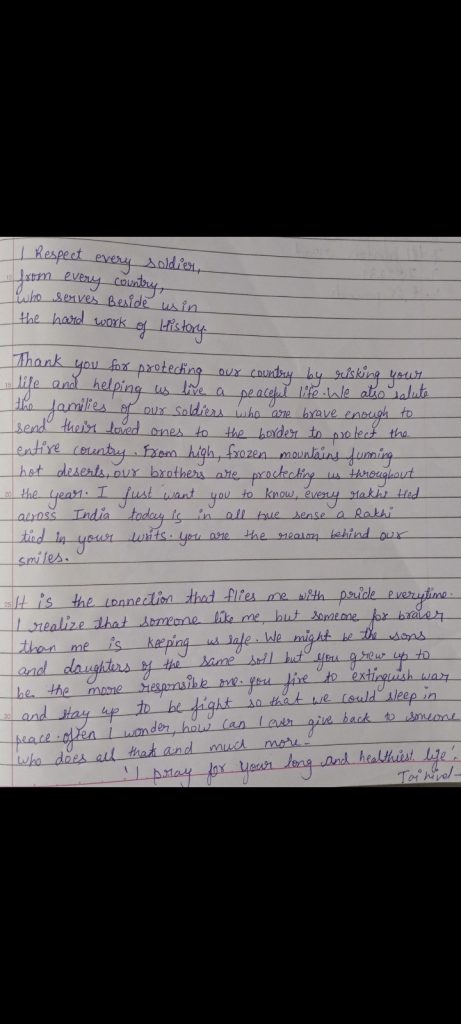 I Respect every soldier,
from every country,
who serves Beside us in
the hard work of History
Thank you for protecting our country by risking your
life and helping us live a peaceful life. We also salute
the families of our soldiers who are brave enough to
send their loved ones to the border to protect the
entire country. From high, frozen mountains funning
hot deserts, our brothers are proctecting us throughout
the year. I just want you to know, every rakhi tied
across India today is in all true sense a Rakhi
tied in your writs. you are the reason behind our
smiles.
It is the connection that flies me with pride everytime.
I realize that someone like me, but someone for braver
than me is keeping us safe. We might be the sons
and daughters of the same soil but you grew up to
be the more responsible one. you fire to extinguish war
and stay up to be fight so that we could sleep in
peace. often I wonder, how can I ever give back to someone
who does all that and much more.
'I pray for your long and healthiest life'.
Jai hind